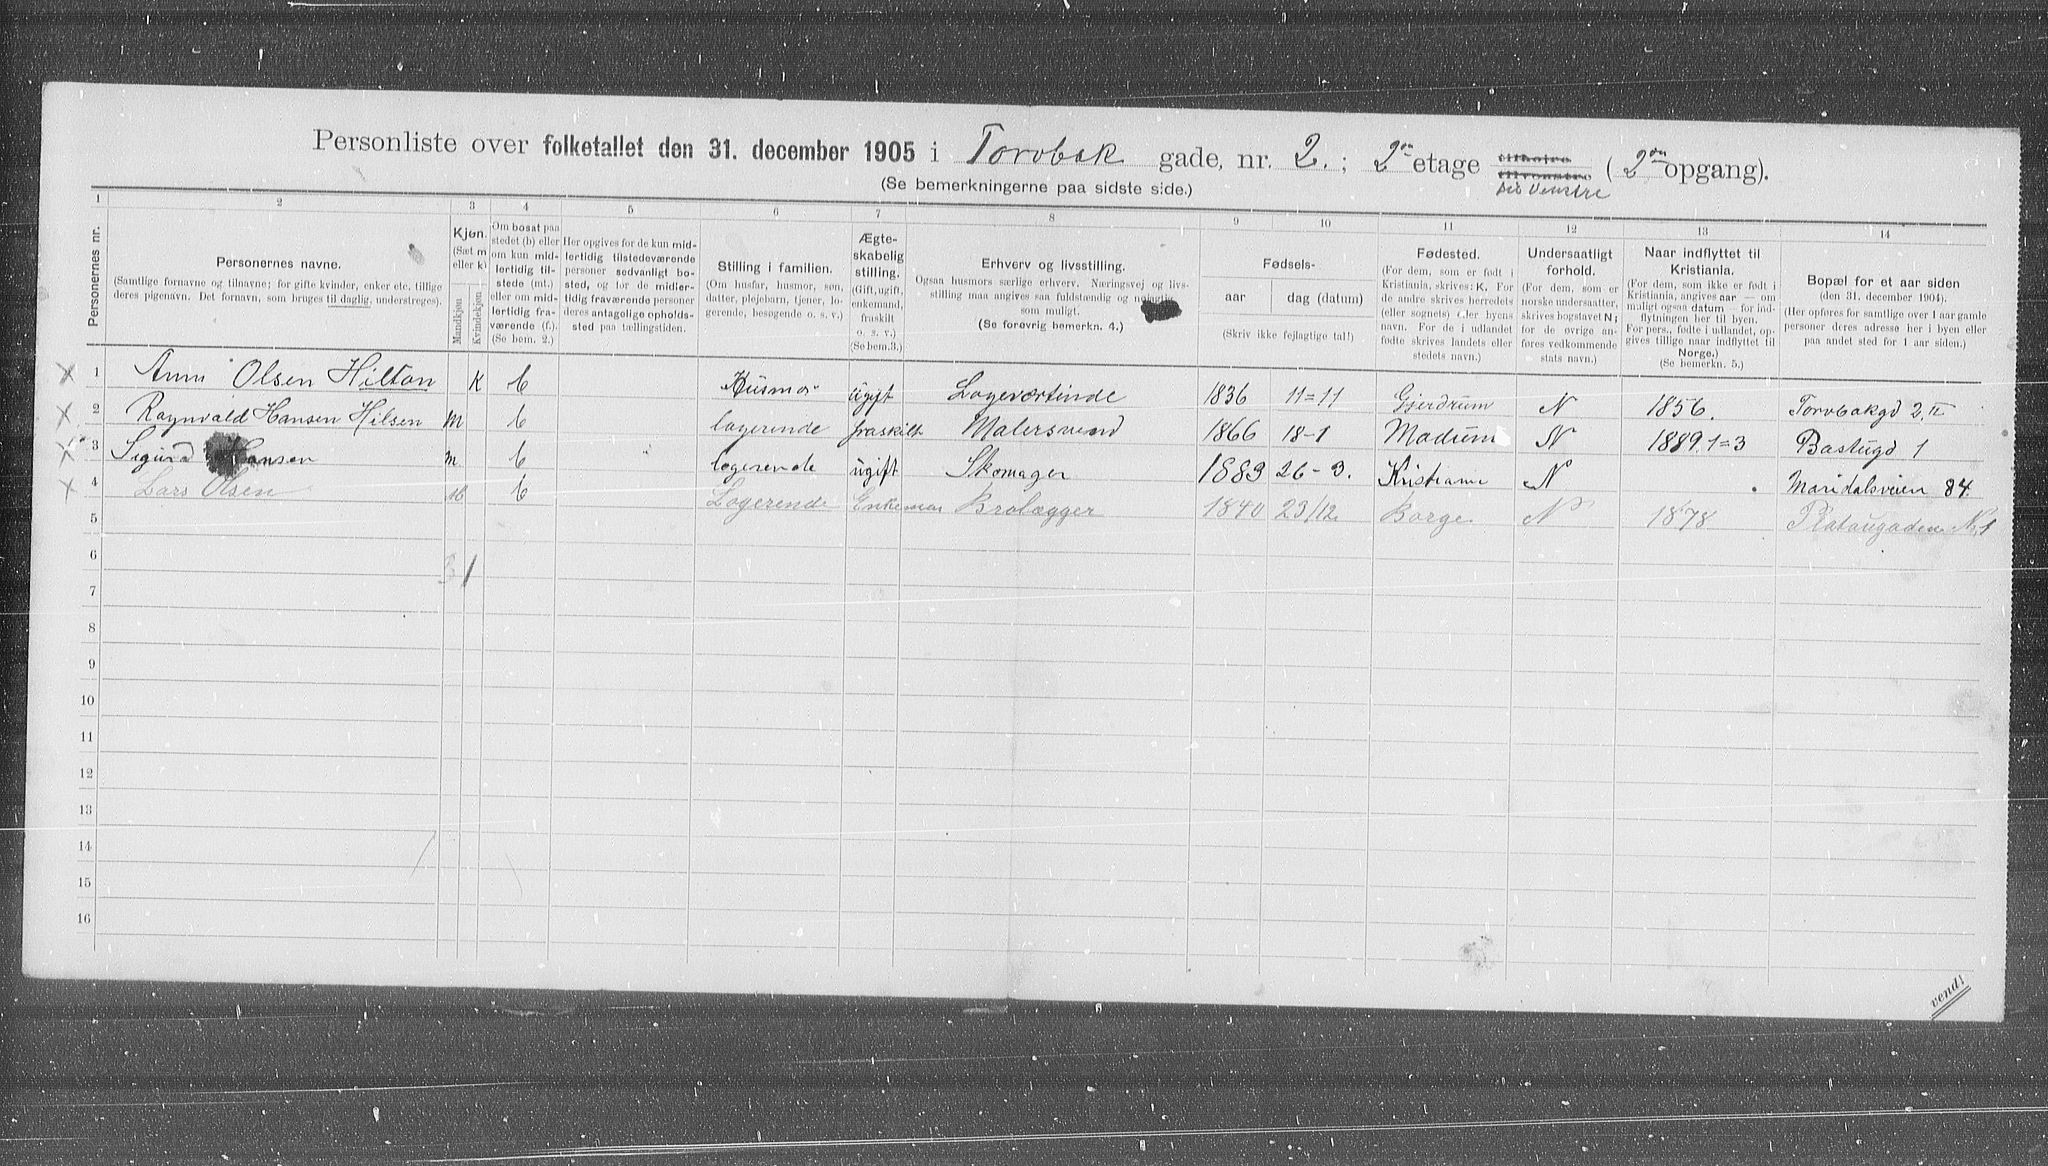 Personliste over folketallet den 31. december 1905 i Torvbak gade, nr. 2. ; 2den etage til venstre ( 2den opgang).
(Se bemerkningerne paa sidste side.)
1 2 3 4 5 6 7 8 9 10 11 12 13 14
Personernes nr.
Personernes navne.
(Samtlige fornavne og tilnavne; for gifte kvinder, enker etc. tillige
deres pigenavn. Det fornavn, som bruges til daglig, understreges).
Kjøn.
(Sæt m
eller k)
Mandkjøn
Kvindekjøn
Om bosat paa
stedet (b) eller
om kun mid-
lertidig til-
stede (mt.)
eller om mid-
lertidig fra-
værende (f.).
(Se bem. 2.)
Her opgives for de kun mid-
lertidig tilstedeværende
personer sedvanligt bo-
sted, og for de midler-
tidig fraværende personer
deres antagelige opholds-
sted paa tællingstiden.
Stilling i familien.
(Om husfar, husmor, søn,
datter, plejebarn, tjener, lo-
gerende, besøgende o. s. v.)
Ægte-
skabelig
stilling.
(Gift, ugift,
enkemand,
fraskilt
o. s. v.)
(Se bem. 3.)
Erhverv og livsstilling.
Ogsaa husmors særlige erhverv. Næringsvej og livs-
stilling maa angives saa fuldstændig og nøiagtig
som muligt.
(Se forøvrig bemerkn. 4.)
Fødsels-
aar
dag (datum)
(Skriv ikke fejlagtige tal!)
Fødested.
(For dem, som er født i
Kristiania, skrives: K. For
de andre skrives herredets
(eller sognets) eller byens
navn. For de i udlandet
fødte skrives landets eller
stedets navn.)
Undersaatligt
forhold.
(For dem, som er
norske undersaatter,
skrives bogstavet N;
for de øvrige an-
føres vedkommende
stats navn.)
Naar indflyttet til
Kristiania.
(For dem, som ikke er født i
Kristiania, angives aar — om
muligt ogsaa datum — for ind-
flytningen her til byen.
For pers., fødte i udlandet, op-
gives tillige naar indflyttet til
Norge.)
(Se bemerkn. 5.)
Bopæl for et aar siden
(den 31. december 1904).
(Her opføres for samtlige over 1 aar gamle
personer deres adresse her i byen eller
paa andet sted for 1 aar siden.)
x 1 Anni Olsen Hilton K b Husmor ugift Logeværtinde 1836 11=11 Gjerdrum N 1856. Torvbakgd 2, II
x 2 Ragnvald Hansen Hilsen M b logerende fraskilt Malersvend 1866 18-1 Modum N 1889.1=3 Bastugd 1
x 3 Sigurd Hansen m b " logerende ugift Skomager 1883 26-3. Kristiania N Maridalsveien 84.
x 4 Lars Olsen M b Logerende Enkeman Brolægger 1840 23/12. Borge N 1878 Platougaden No 1
5
6
3 1
7
8
9
10
11
12
13
14
15
16
vend!